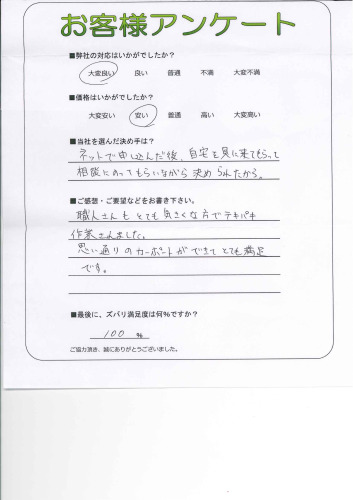 お客様アンケート
■弊社の対応はいかがでしたか?
大変良い 良い 普通 不満 大変不満
■価格はいかがでしたか?
大変安い 安い 普通 高い 大変高い
■当社を選んだ決め手は?
ネットで申し込んだ後、自宅を見に来てもらって
相談にのってもらいながら決められたから。
■ご感想・ご要望などをお書き下さい。
職人さんもとても気さくな方でテキパキ
作業されました。
思い通りのカーポートができてとても満足
です。
■最後に、ズバリ満足度は何%ですか?
100 %
ご協力頂き、誠にありがとうございました。